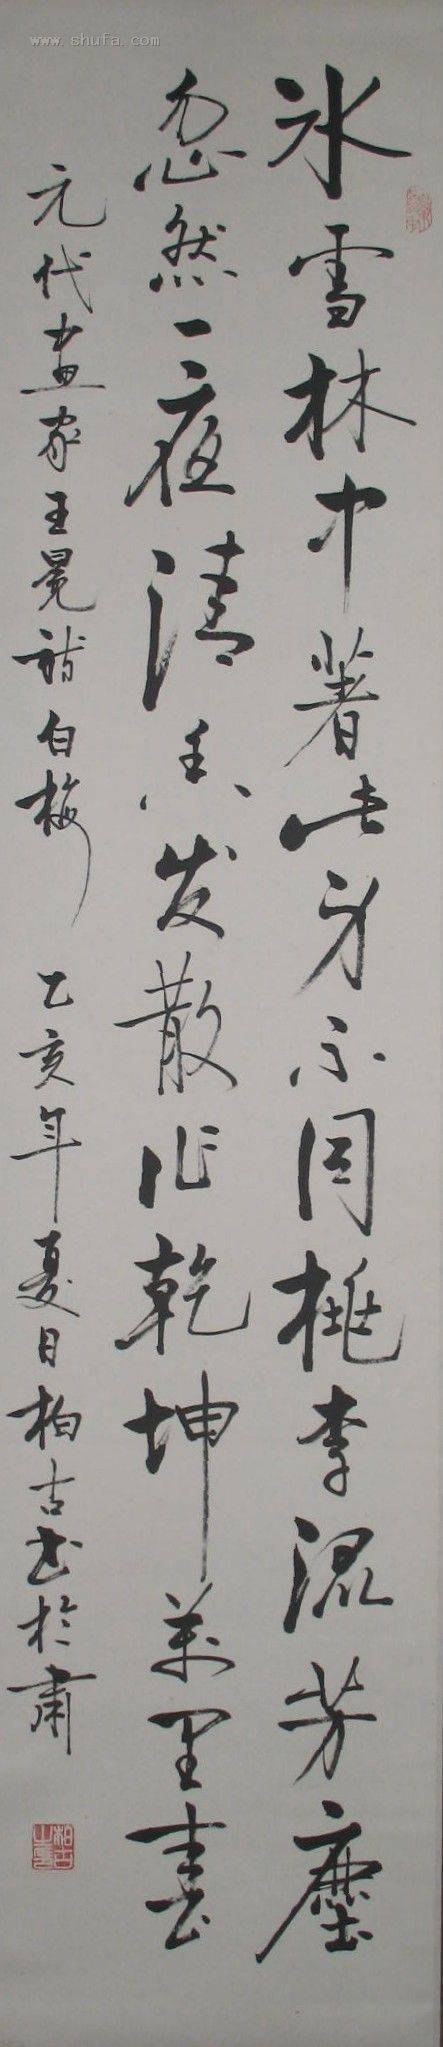 www.shufa.com
冰雪林中著此身不同桃李混芳塵
忽然一夜清香发散作乾坤萬里春
元代畫家王冕詩白梅 乙亥年夏日柏古书於肅